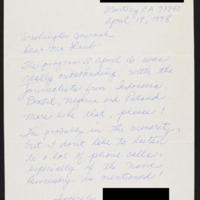 Monterey CA 93940
April 17, 1998
Washington Journal
Dear Mr. Lamb
The program of April 16 was
really outstanding with the
journalists from Indonesia
Brazil, Nigeria and Poland.
More like that, please!
I'm probably in the minority,
but I don't like to listen
to a lot of phone calls,
especially if the name
is mentioned!
Sincerely